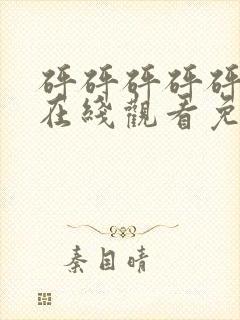 砰砰砰砰砰
在綫觀看免
秦目晴